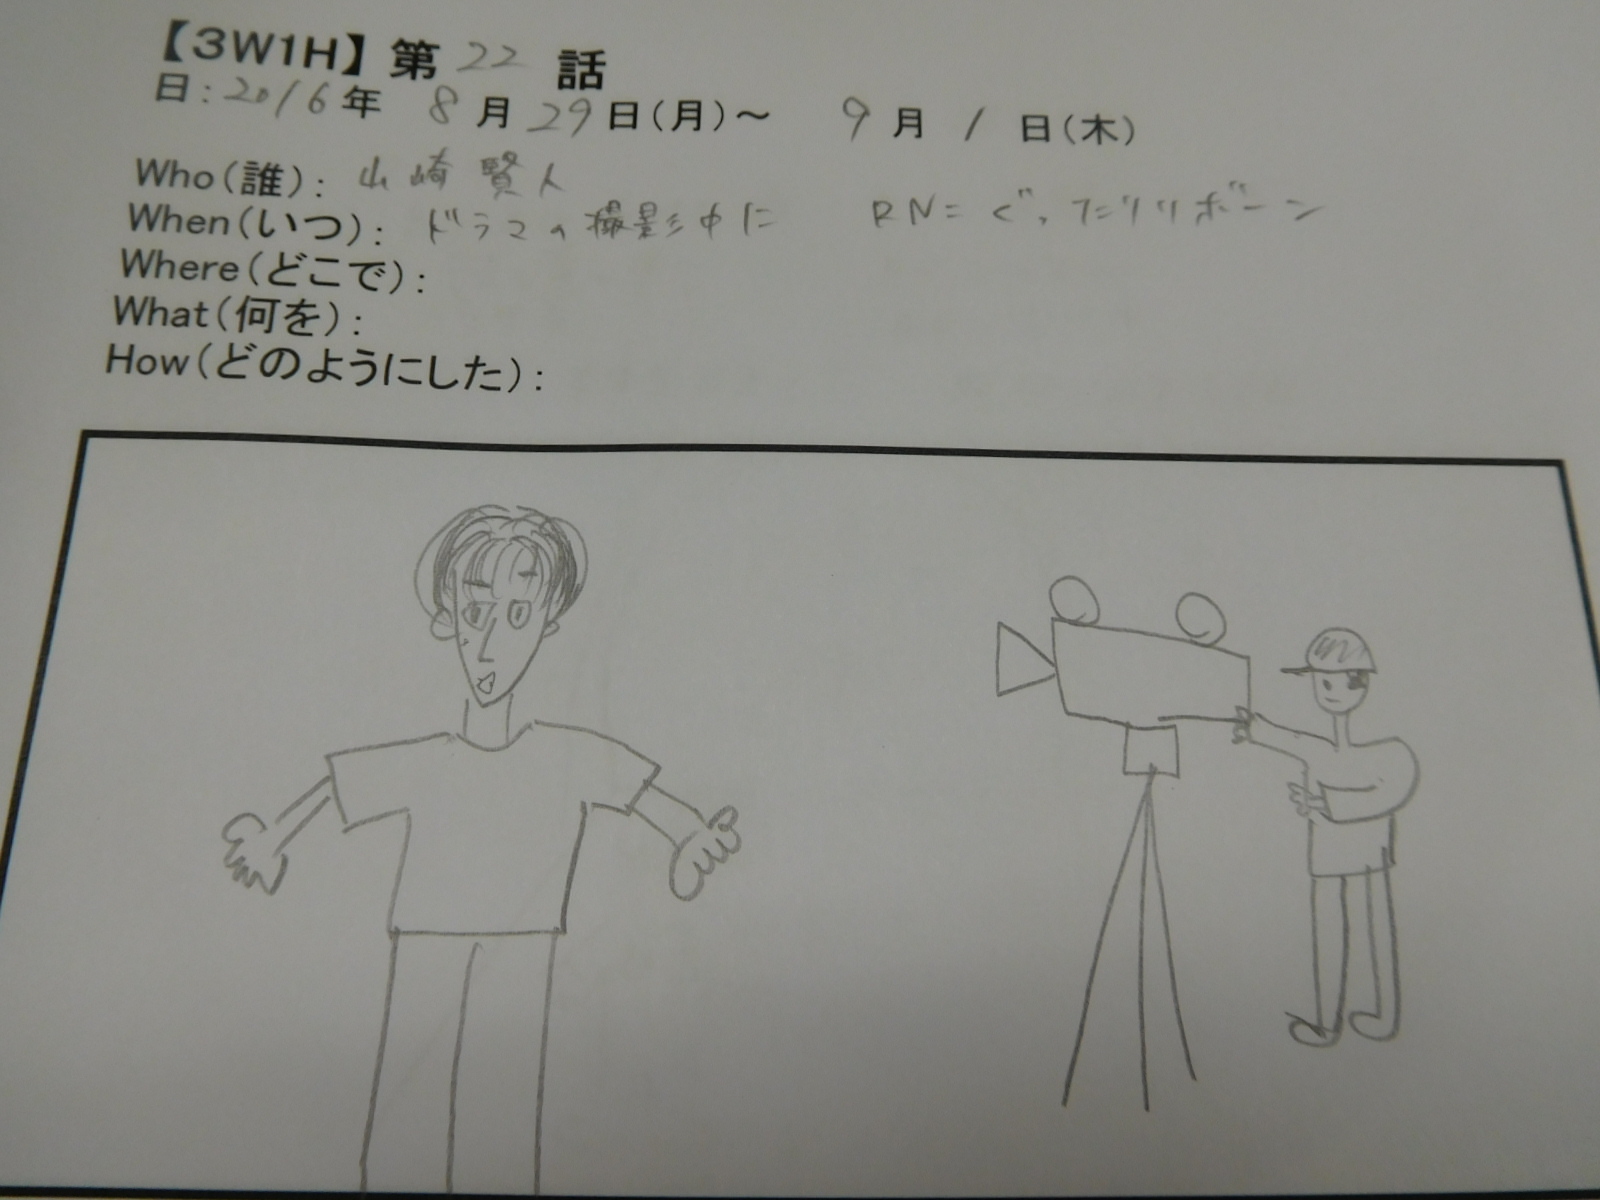 【3W1H】第22話
日:2016年 8月29日(月)～ 9月1日(木)
Who(誰): 山崎賢人
When(いつ): ドラマの撮影中に RN=ぐったりリボーン
Where(どこで):
What(何を):
How(どのようにした):